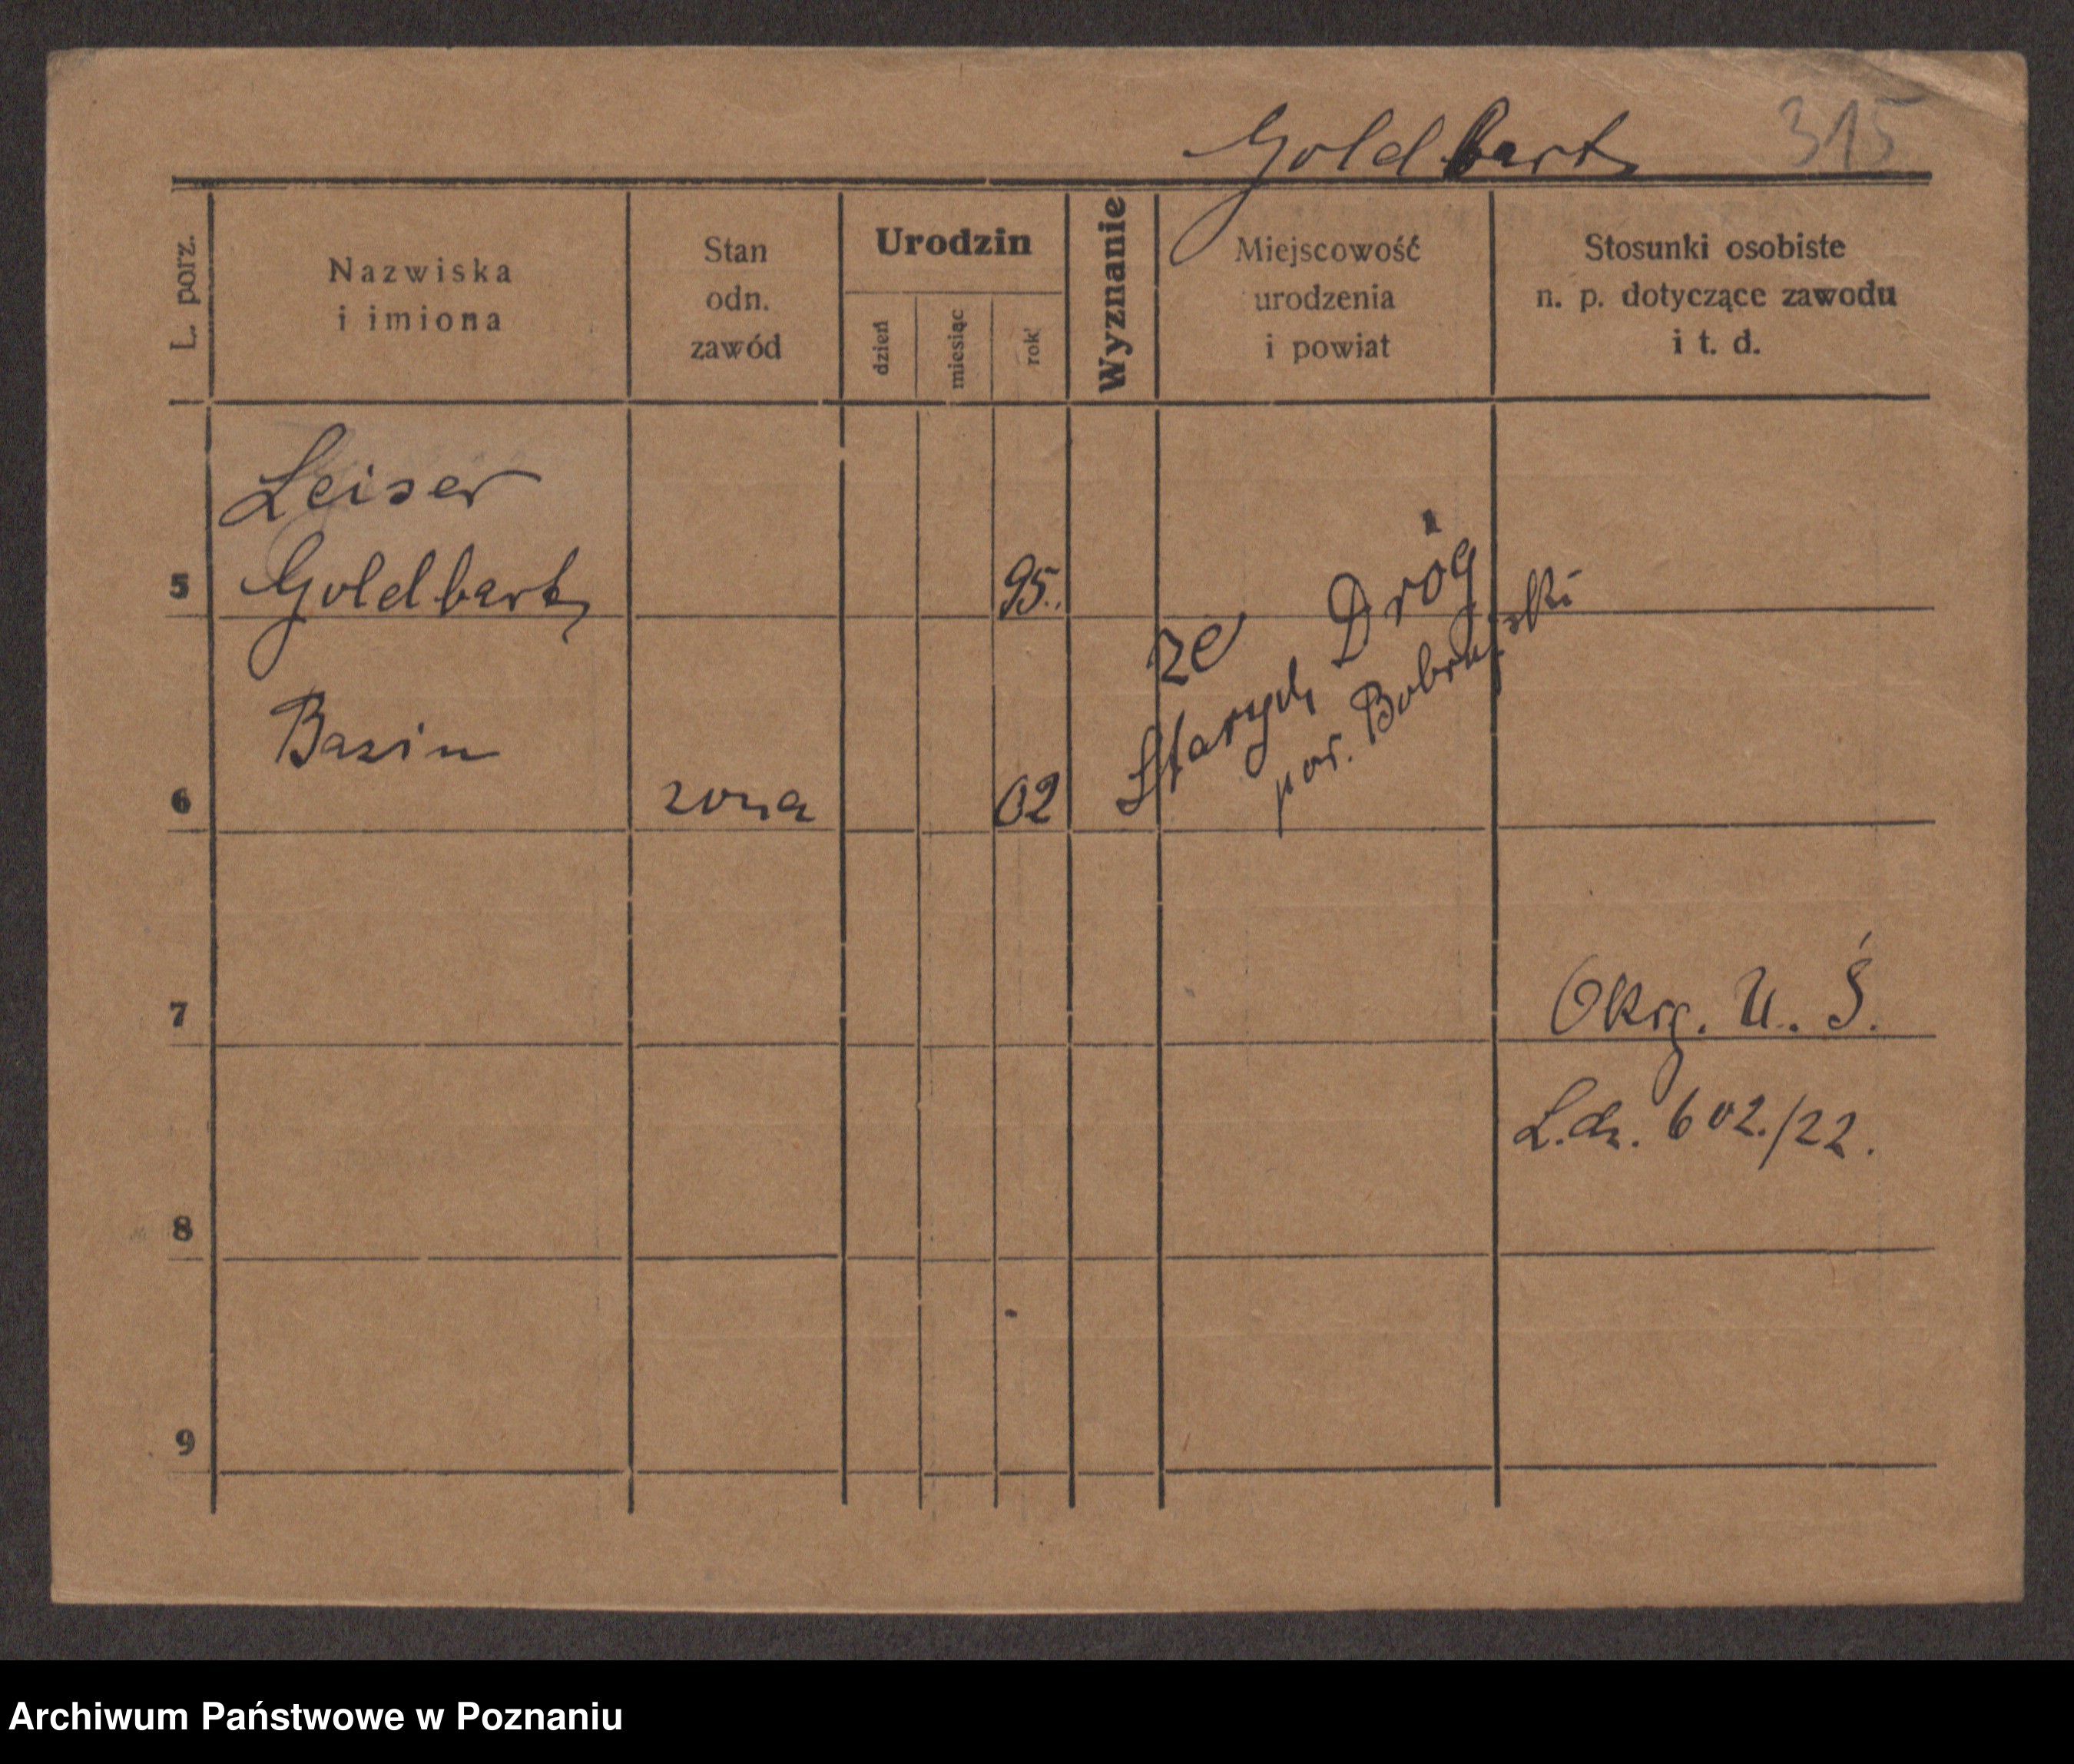 Goldbart 315
L. porz.
Nazwiska
i imiona
Stan
odn.
zawód
Urodzin
dzień
miesiąc
rok
Wyznanie
Miejscowość
urodzenia
i powiat
Stosunki osobiste
n. p. dotyczące zawodu
i t. d.
Leiser
5 Goldbart 95.
ze Dróg
Starych
pow. Bobrujski
Basin
6 zona 02
7 Okrg. U. Ś.
L.dz. 602./22.
8
9
Archiwum Państwowe w Poznaniu